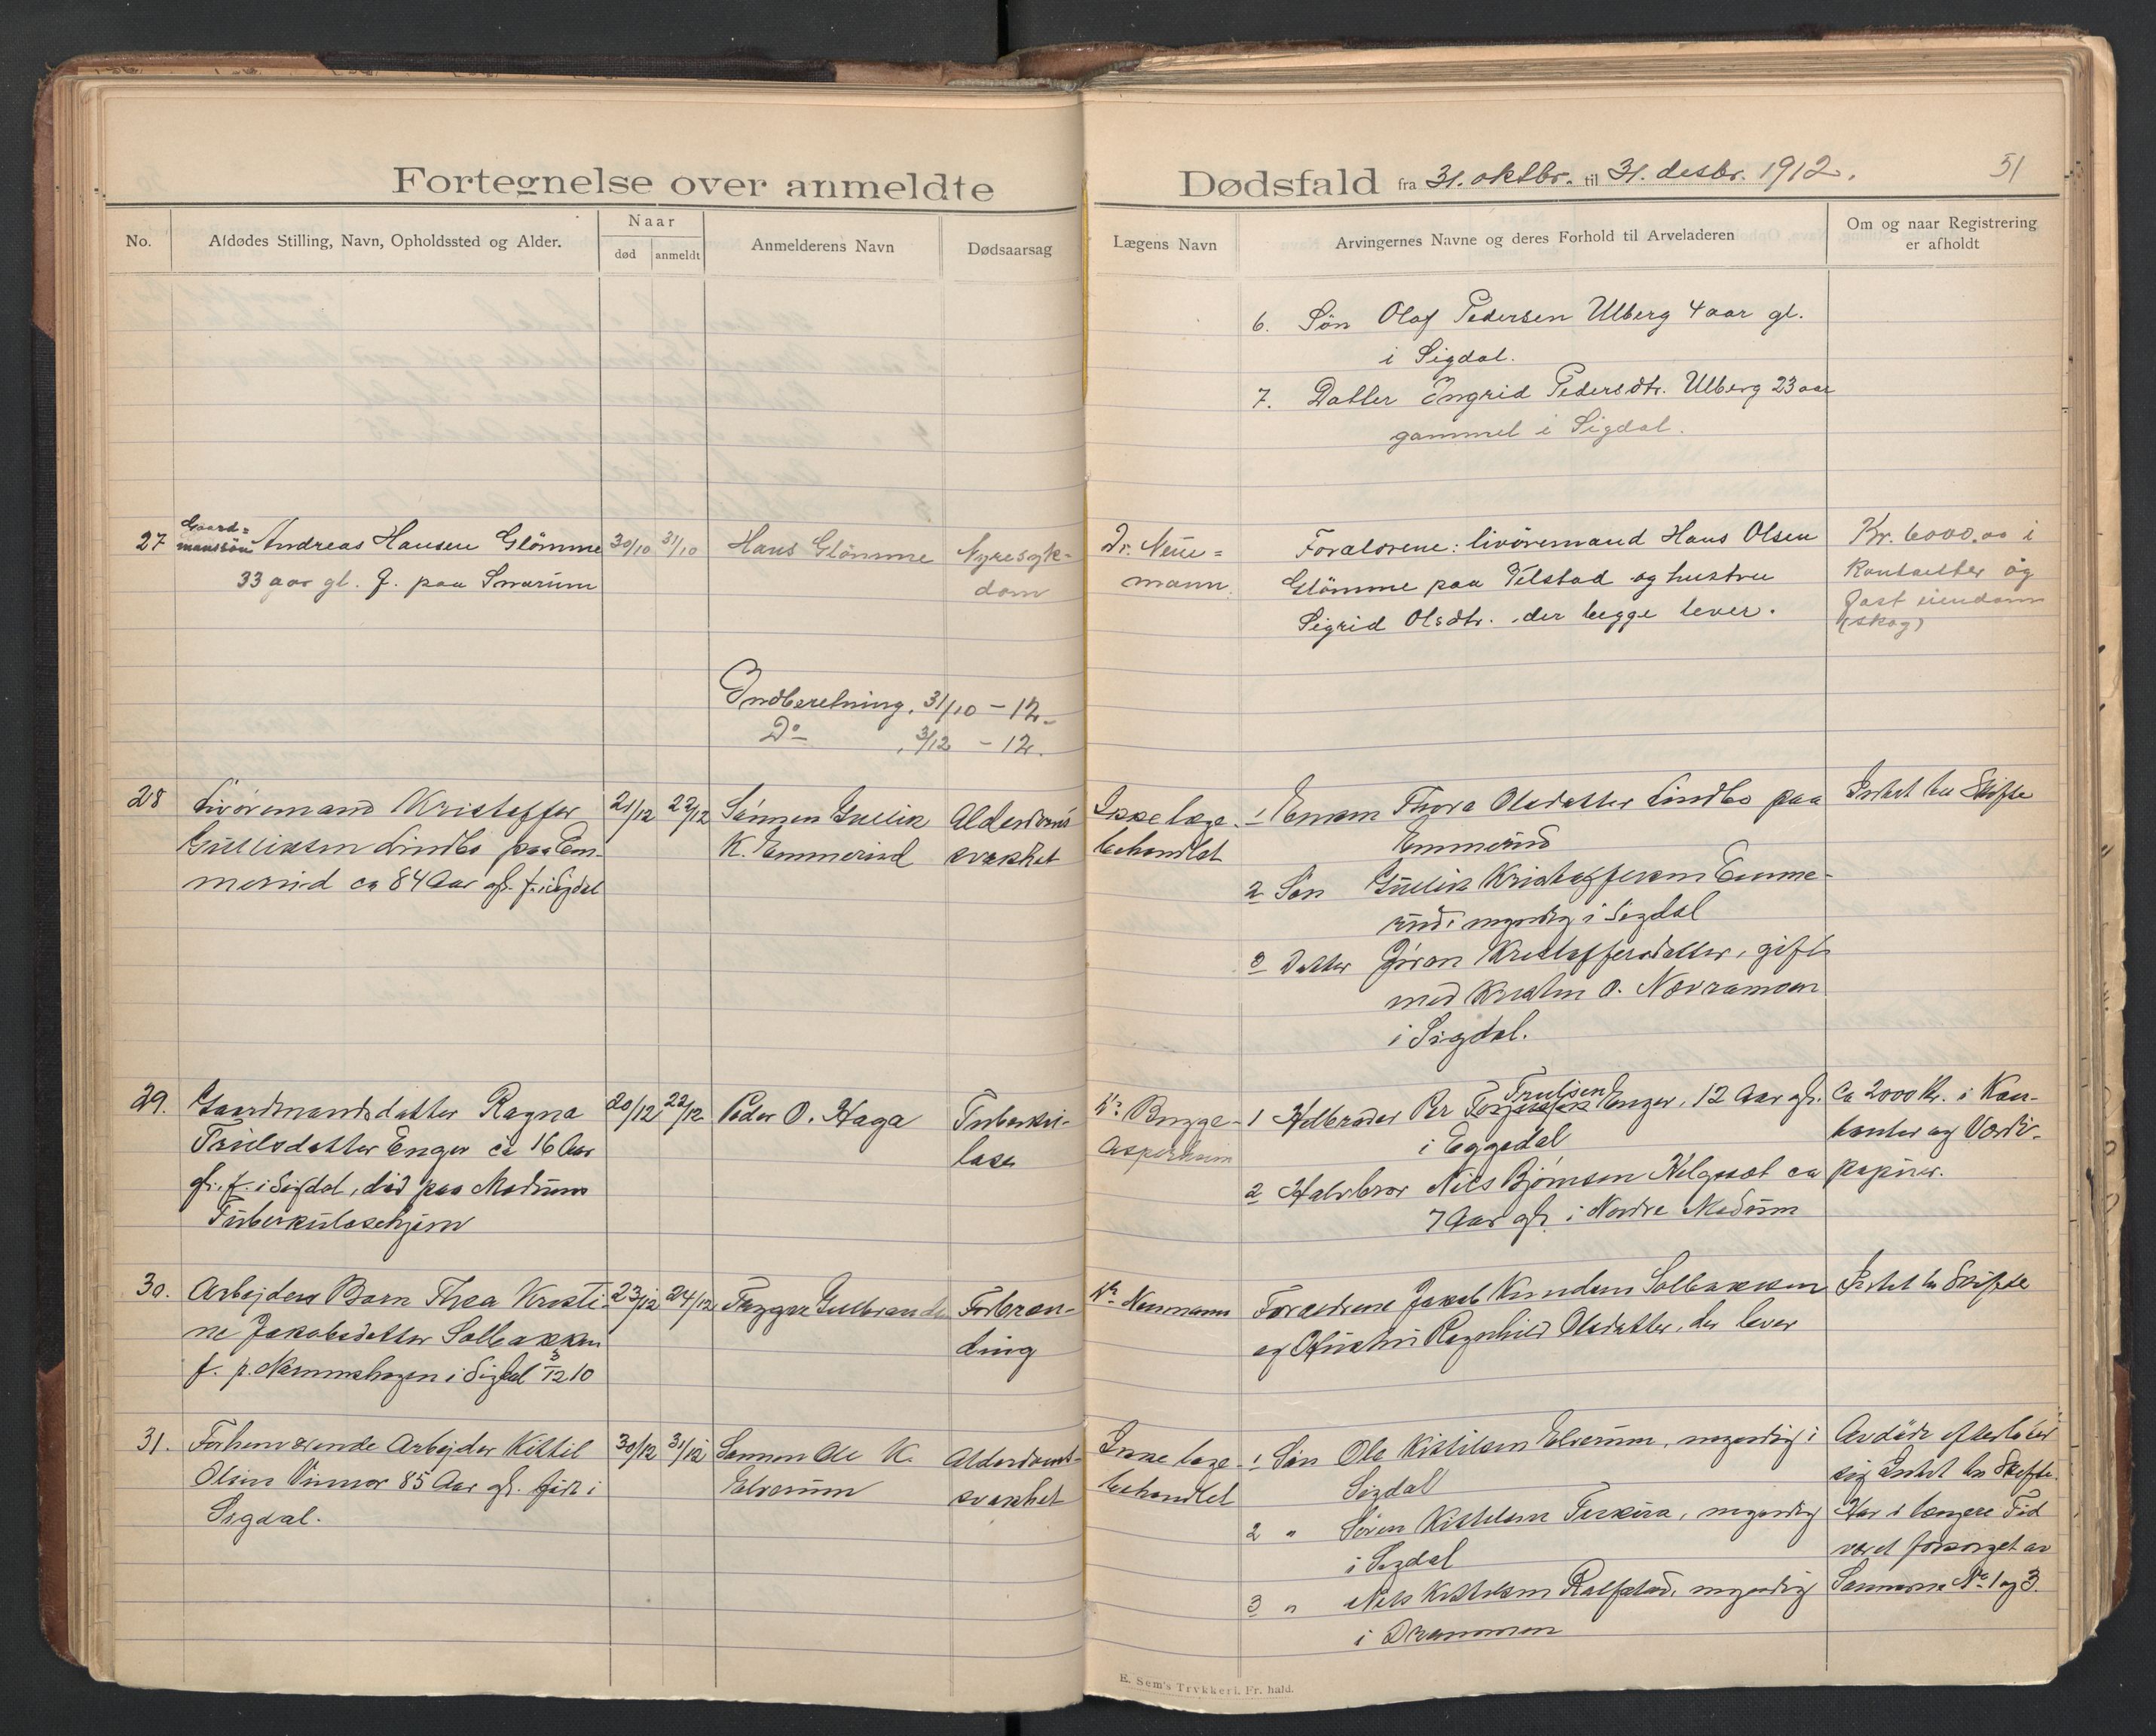 Fortegnelse over anmeldte
Dødsfald fra 31. oktbr. til 31. desbr. 1912.
51
No.
Afdødes Stilling, Navn, Opholdssted og Alder.
Naar
død
anmeldt
Anmelderens Navn
Dødsaarsag
Lægens Navn
Arvingernes Navne og deres Forhold til Arveladeren
Om og naar Registrering
er afholdt
6. Søn Olaf Pedersen Ulberg 4 aar gl.
i Sigdal.
7. Datter Ingrid Pedersdtr. Ulberg 23 aar
gammel i Sigdal.
27
Gaard=
manssøn Andreas Hansen Glömme
33 aar gl. f. paa Snarum
30/10
31/10
Hans Glömme
Nyresyk-
dom
Dr. Neu=
mann.
Forældrene: livöremand Hans Olsen
Glömme paa Velstad og hustru
Sigrid Olsdtr. der begge lever.
Kr. 6000.00 i
Kontanter og
fast eiendom
(skog)
Indberetning, 31/10 - 12.
Do , 3/12 - 12.
28
Livöremand Kristoffer
Gulliksen Lindbo paa Em-
merud ca 84 Aar gl. f. i Sigdal
21/12
22/12
Sønnen Gullik
K. Emmerud
Alderdoms
svakhet
Ikke læge-
behandlet
1 Enken Thora Olsdatter Lindbo paa
Emmerud
2 Søn Gullik Kristoffersen Emme-
rud, myndig i Sigdal
3 Datter Jöran Kristoffersdatter, gift
med O. Nævramoen
i Sigdal.
Intet til Skifte
29.
Gaardmandsdatter Ragna
Trulsdatter Enger ca 16 Aar
gl. f. i Sigdal, död paa Modums
Tuberkulosehjem
20/12
22/12
Peder O. Haga
Tuberku-
lose
Dr. Bugge-
Asperheim
1 Helbroder Per Trulsen Enger, 12 Aar gl.
i Eggedal
2 Halvbror Nils Bjørnsen ca
7 Aar gl. i Nordre Modum
Ca 2000 Kr. i Kon-
tanter og Værdi-
papirer.
30.
Arbejders Barn Thea Kristi-
ne Jakobsdatter Solbakken
f. p. Nymmehagen i Sigdal 3/12 10
23/12
24/12
Trygge Gulbrandsen
Forbræn-
ding
Dr. Neumann
Forældrene Jakob Knudsen Solbakken
og Hustru Ragnhild Olsdatter, der lever
Intet til Skifte
31.
Forhenværende Arbejder Kittil
Olsen Vinnor 85 Aar gl. født i
Sigdal.
30/12
31/12
Sønnen Ole K.
Elverum
Alderdoms-
svakhet
Ikke læge-
behandlet
1 Søn Ole Kittilsen Elverum, myndig i
Sigdal
2 " Søren Kittilsen , myndig
i Sigdal
3 " Nils Kittilsen , myndig
i Drammen
Avdöde efterlader
sig Intet til Skifte.
Har i længere Tid
været forsørget av
Sønnerne No 1 og 3.
E. Sem's Trykkeri, Fr. hald.